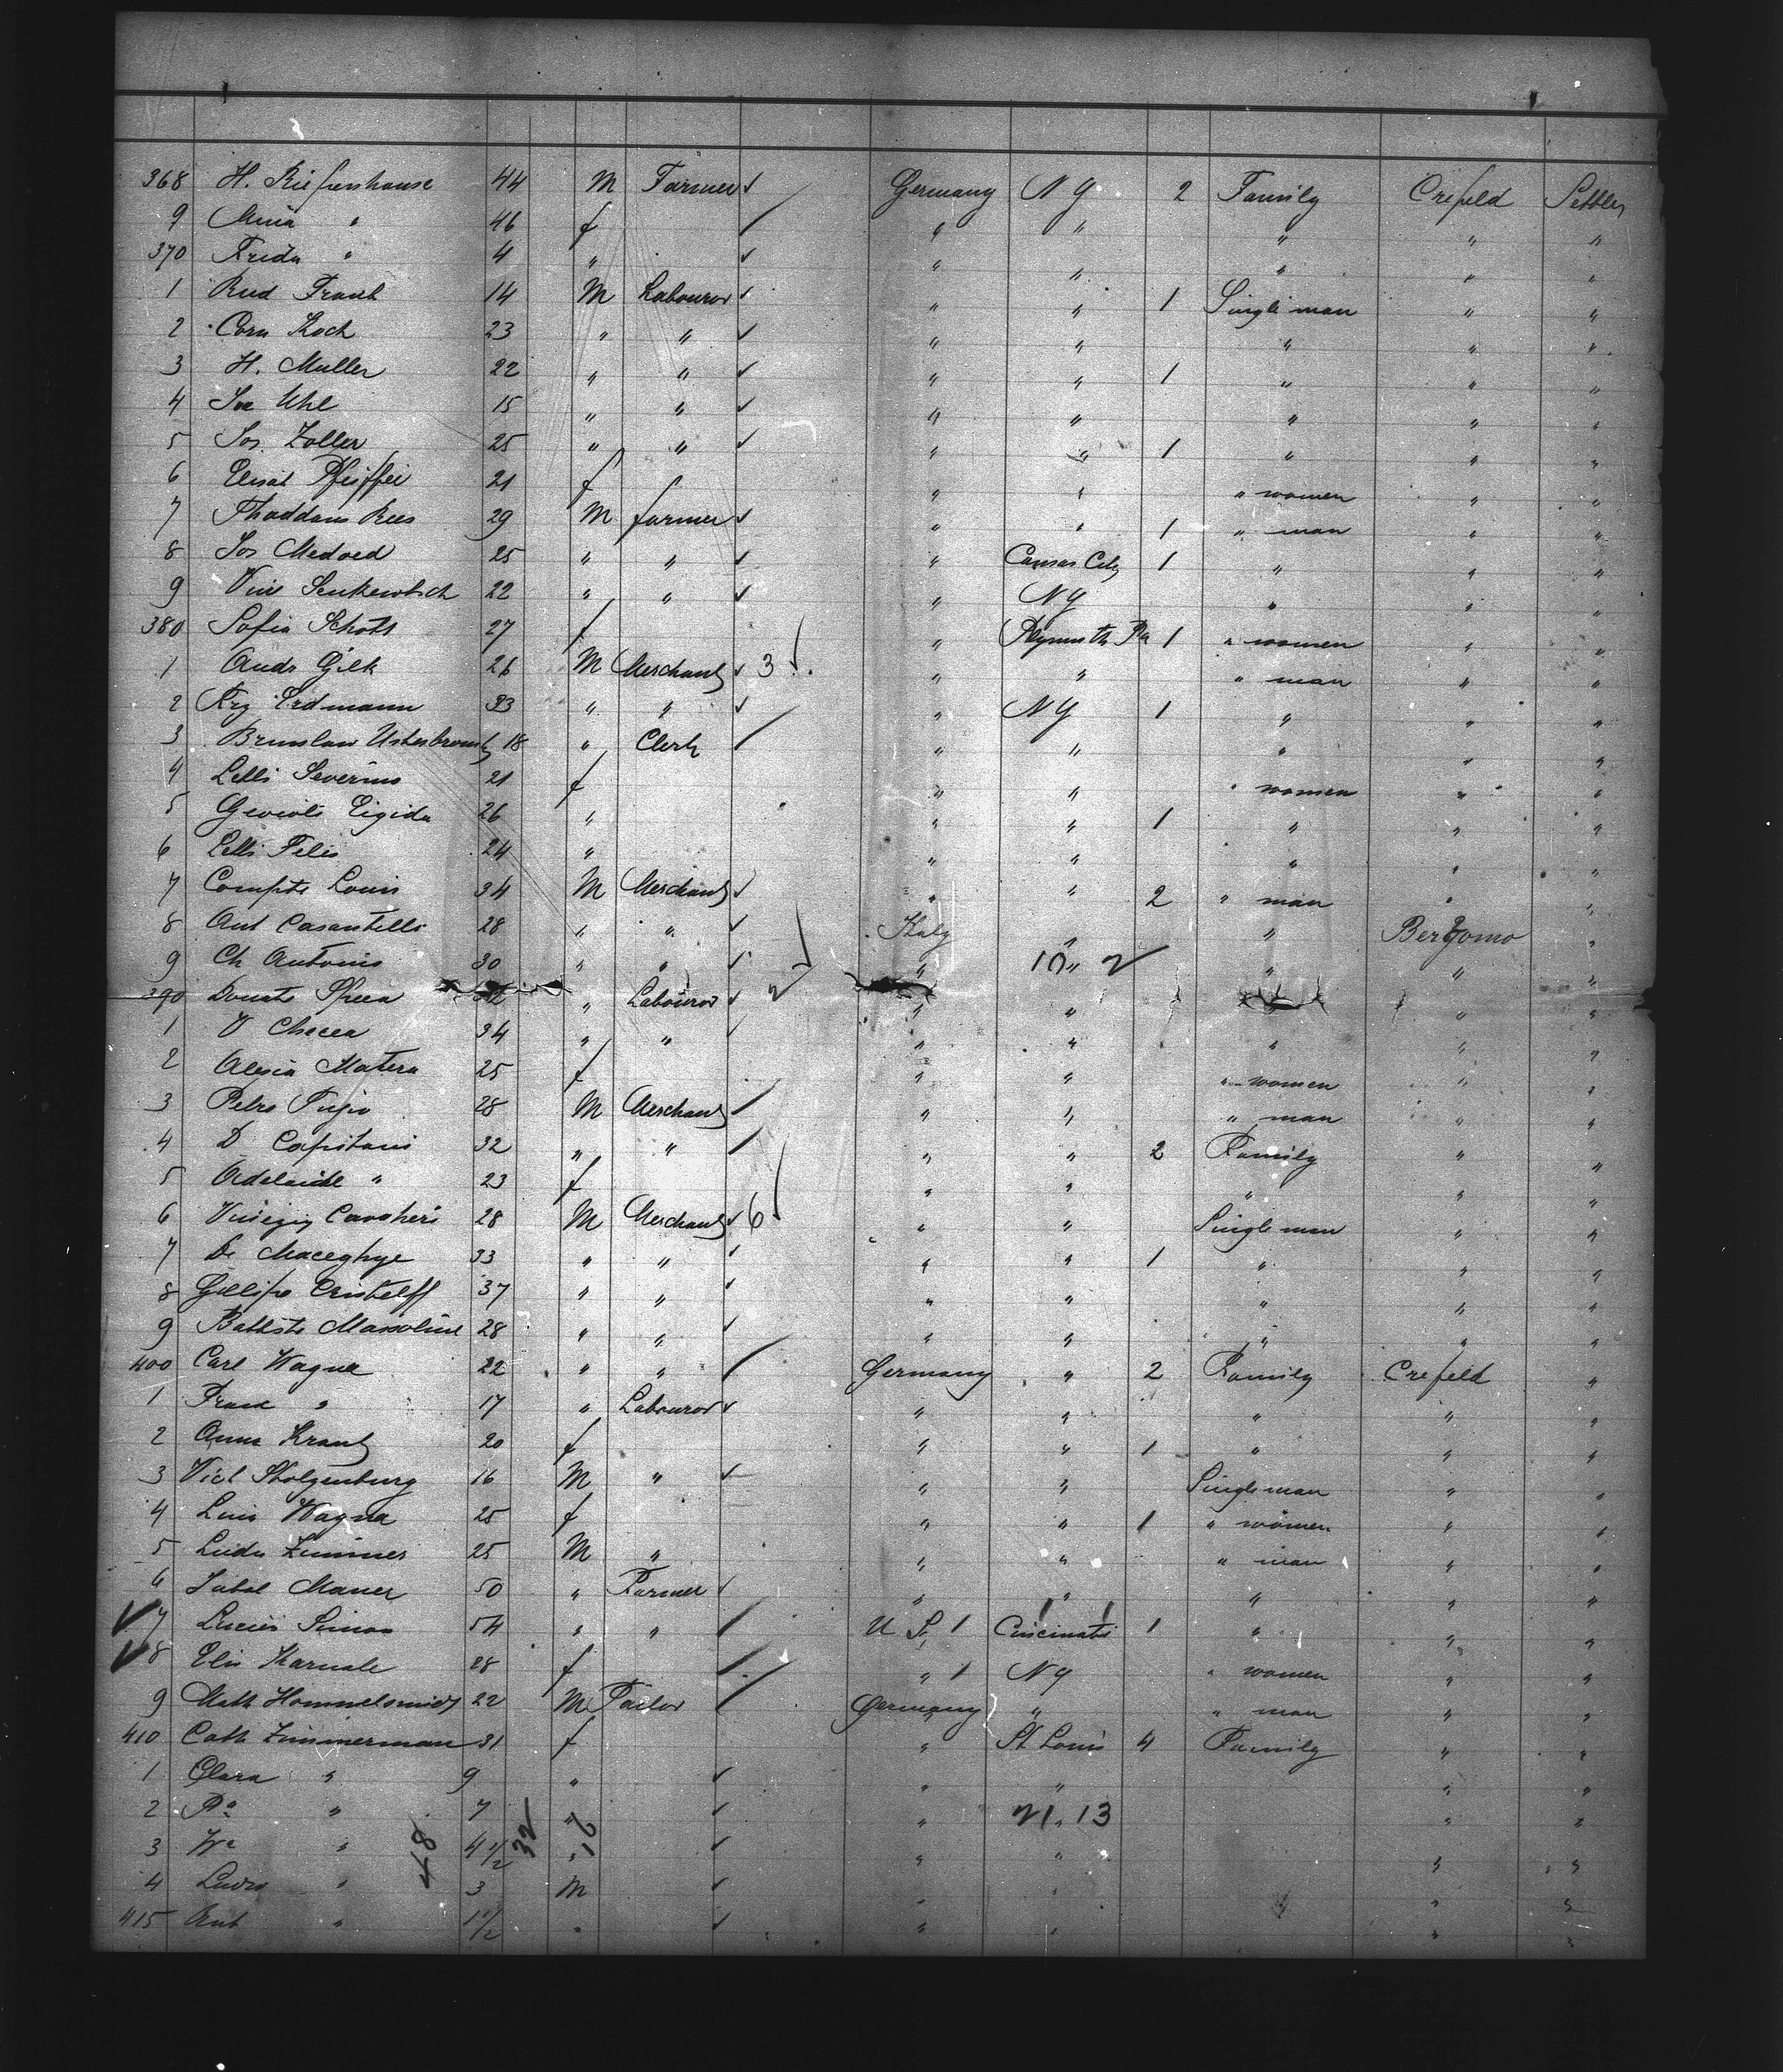 368 H. Riefenhause 44 M Farmer ✓ Germany N Y 2 Family Crefeld Settler
9 Mina " 46 f " " " " "
370 Frieda " 4 " ✓ " " " " "
1 Rud Traub 14 M Labourer ✓ " " 1 Single man " "
2 Corn Koch 23 " " ✓ " " " " "
3 H. Muller 22 " " ✓ " " 1 " " "
4 Jos Uhl 15 " " ✓ " " " " "
5 Jos. Zoller 25 " " ✓ " " 1 " " "
6 Elisat Pfeiffer 21 f " " " women " "
7 Thaddaus Rees 29 M farmer ✓ " " 1 " man " "
8 Jos Medved 25 " " ✓ " Cansas City 1 " " "
9 Vin Senkewitsch 22 " " ✓ " N Y " " "
380 Sofia Schott 27 f " Plymouth Pa 1 " women " "
1 Andr Gilk 26 M Merchant ✓ 3 ✓ " " " man " "
2 Erdmann 33 " " ✓ " N Y 1 " " "
3 18 " Clerk " " " " "
4 Lelli Severino 21 f " " " women " "
5 Eigida 26 " " " 1 " " "
6 Lelli Felis 24 " " " " " "
7 Compte Louis 34 M Merchant ✓ " " 2 " man " "
8 Ant Casantelli 28 " " ✓ Italy " " Bergomo "
9 Ch Antonio 30 " " ✓ " 10 " 2 " " "
390 Donato " Labourer ✓ 2 " " " "
1 V Checca 34 " " ✓ " " " " "
2 Alesia Matera 25 f " " " women " "
3 Petro 28 M Merchant " " " man " "
4 D Capitani 32 " " " " 2 Family " "
5 Adelaide " 23 f " " " " "
6 Cavaheri 28 M Merchant ✓ 6 ✓ " " Single man " "
7 De Maceghye 33 " " ✓ " " 1 " " "
8 37 " " ✓ " " " " "
9 Battista Massolini 28 " " ✓ " " " " "
400 Carl Wagner 22 " " Germany " 2 Family Crefeld "
1 Franz " 17 " Labourer ✓ " " " " "
2 Anna Krantz 20 f " " 1 " " "
3 Vict Stolzenburg 16 M " ✓ " " Single man " "
4 Luis Wagner 25 f " " 1 " women " "
5 Ludw Zimmer 25 M " " " " man " "
6 Maner 50 " Farmer ✓ " " " " "
✓ 7 Simon 54 " " U S, 1 Cincinati 1 " " "
✓ 8 Elis 28 f " 1 N Y " women " "
9 Math Hommelsmidt 22 M Tailor Germany " " man " "
410 Cath Zimmerman 31 f " St Louis 4 Family " "
1 Clara " 9 " ✓ " " " "
2 " 7 " ✓ " 21 . 13 " "
3 " 4 1/2 " ✓ " " " "
4 Ludw " 3 M ✓ " " " "
415 Ant " 1 1/2 " ✓ " " " "
48 32 16